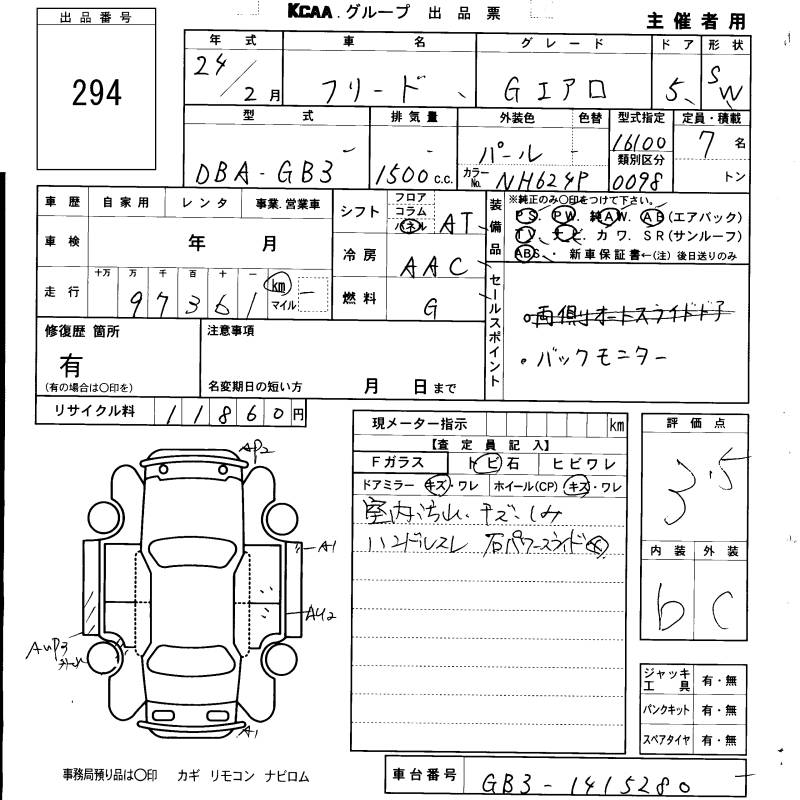 KCAA.グループ 出品票
主催者用
出品番号
294
年式 車名 グレード ドア 形状
24/2月 フリード Gエアロ 5 SW
型式 排気量 外装色 色替 型式指定 定員・積載
DBA-GB3 1500c.c. パール カラーNo. NH624P 16100 7名
類別区分
0098 トン
車歴 自家用 レンタ 事業.営業車
車検 年 月
走行 十万 万 千 百 十 一 km マイル
97361
シフト フロア コラム パネル AT
冷房 AAC
燃料 G
装備品
※純正のみ○印をつけて下さい。
PS. PW. 純AW. AB(エアバック)
TV. ナビ. カワ. SR(サンルーフ)
ABS. 新車保証書←(注)後日送りのみ
セールスポイント
・両側オートスライドドア
・バックモニター
修復歴 箇所
有
(有の場合は○印を)
注意事項
名変期日の短い方 月 日まで
リサイクル料 11860円
現メーター指示 km
【査定員記入】
Fガラス トビ石 ヒビワレ
ドアミラー キズ・ワレ ホイール(CP) キズ・ワレ
室内汚れ、キズ、しみ
ハンドルスレ 右パワースライド
評価点
3.5
内装 外装
b C
AP2
A1
AU2
AUP3
A1
ジャッキ工具 有・無
パンクキット 有・無
スペアタイヤ 有・無
事務局預り品は○印 カギ リモコン ナビロム
車台番号 GB3-1415280